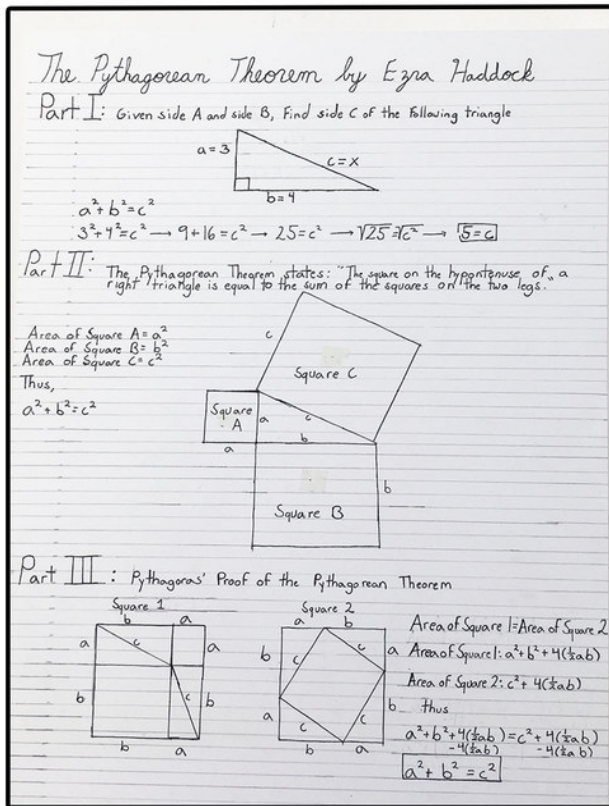 The Pythagorean Theorem by Ezra Haddock
Part I: Given side A and side B, Find side C of the following triangle
a=3
c=x
b=4
a²+b²=c²
3²+4²=c² → 9+16=c² → 25=c² → √25=√c² → 5=c
Part II: The Pythagorean Theorem states: "The square on the hypontenuse of a
right triangle is equal to the sum of the squares on the two legs."
Area of Square A=a²
Area of Square B=b²
Area of Square C=c²
Thus,
a²+b²=c²
c
Square C
Square
A
a
c
a
b
b
Square B
Part III: Pythagoras' Proof of the Pythagorean Theorem
Square 1
b
a
a
c
a
b
c
b
b
a
Square 2
a
b
b
c
c
a
a
c
c
b
b
a
Area of Square 1=Area of Square 2
Area of Square 1: a²+b²+4(½ab)
Area of Square 2: c²+4(½ab)
thus
a²+b²+4(½ab)=c²+4(½ab)
-4(½ab) -4(½ab)
a²+b²=c²